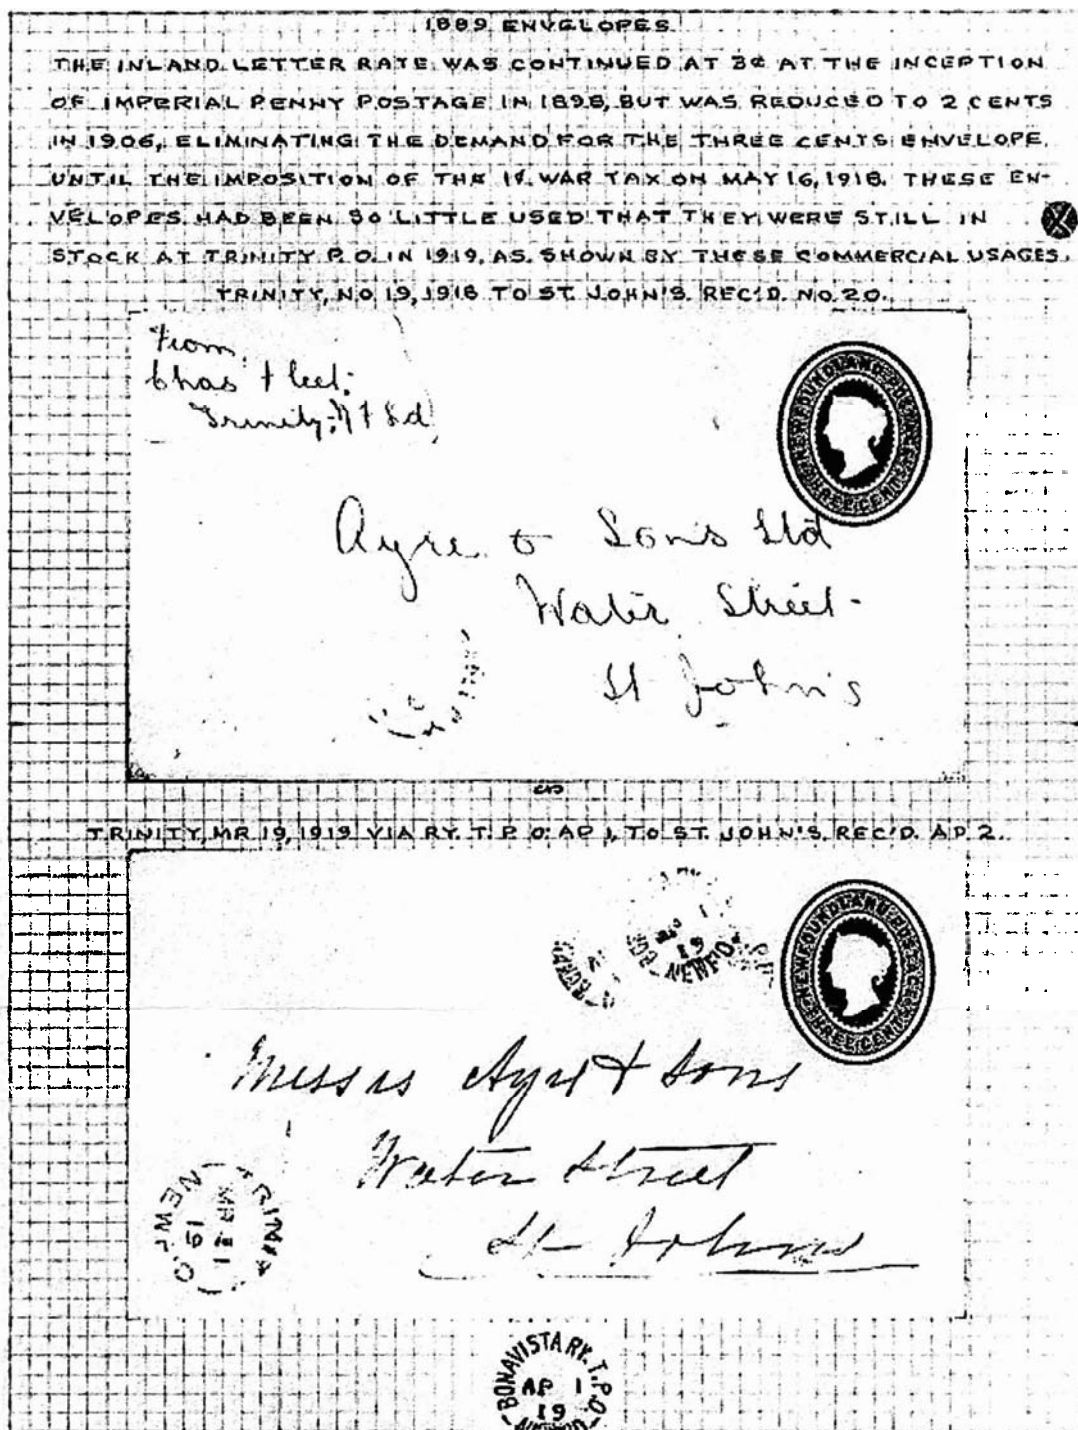 1889 ENVELOPES.
THE INLAND LETTER RATE WAS CONTINUED AT 3¢ AT THE INCEPTION
OF IMPERIAL PENNY POSTAGE IN 1898, BUT WAS REDUCED TO 2 CENTS
IN 1906, ELIMINATING THE DEMAND FOR THE THREE CENTS ENVELOPE
UNTIL THE IMPOSITION OF THE 1¢ WAR TAX ON MAY 16, 1918. THESE EN-
VELOPES HAD BEEN SO LITTLE USED THAT THEY WERE STILL IN
STOCK AT TRINITY P.O. IN 1919, AS SHOWN BY THESE COMMERCIAL USAGES.
TRINITY, NO 19, 1918 TO ST. JOHN'S. REC'D. NO. 20.
From
Chas Fleet
Trinity, Nfld
NEWFOUNDLAND POSTAGE
THREE CENTS
Ayre & Sons Ltd
Water Street
St John's
TRINITY, MR 19, 1919 VIA RY. T.P.O. AP 1, TO ST. JOHN'S. REC'D. AP 2.
1
19
NEWFD
NEWFOUNDLAND POSTAGE
THREE CENTS
Messrs Ayre & Sons
Water Street
St Johns
MR 21
19
NEWF'D
BONAVISTA RY. T.P.O.
AP 1
19